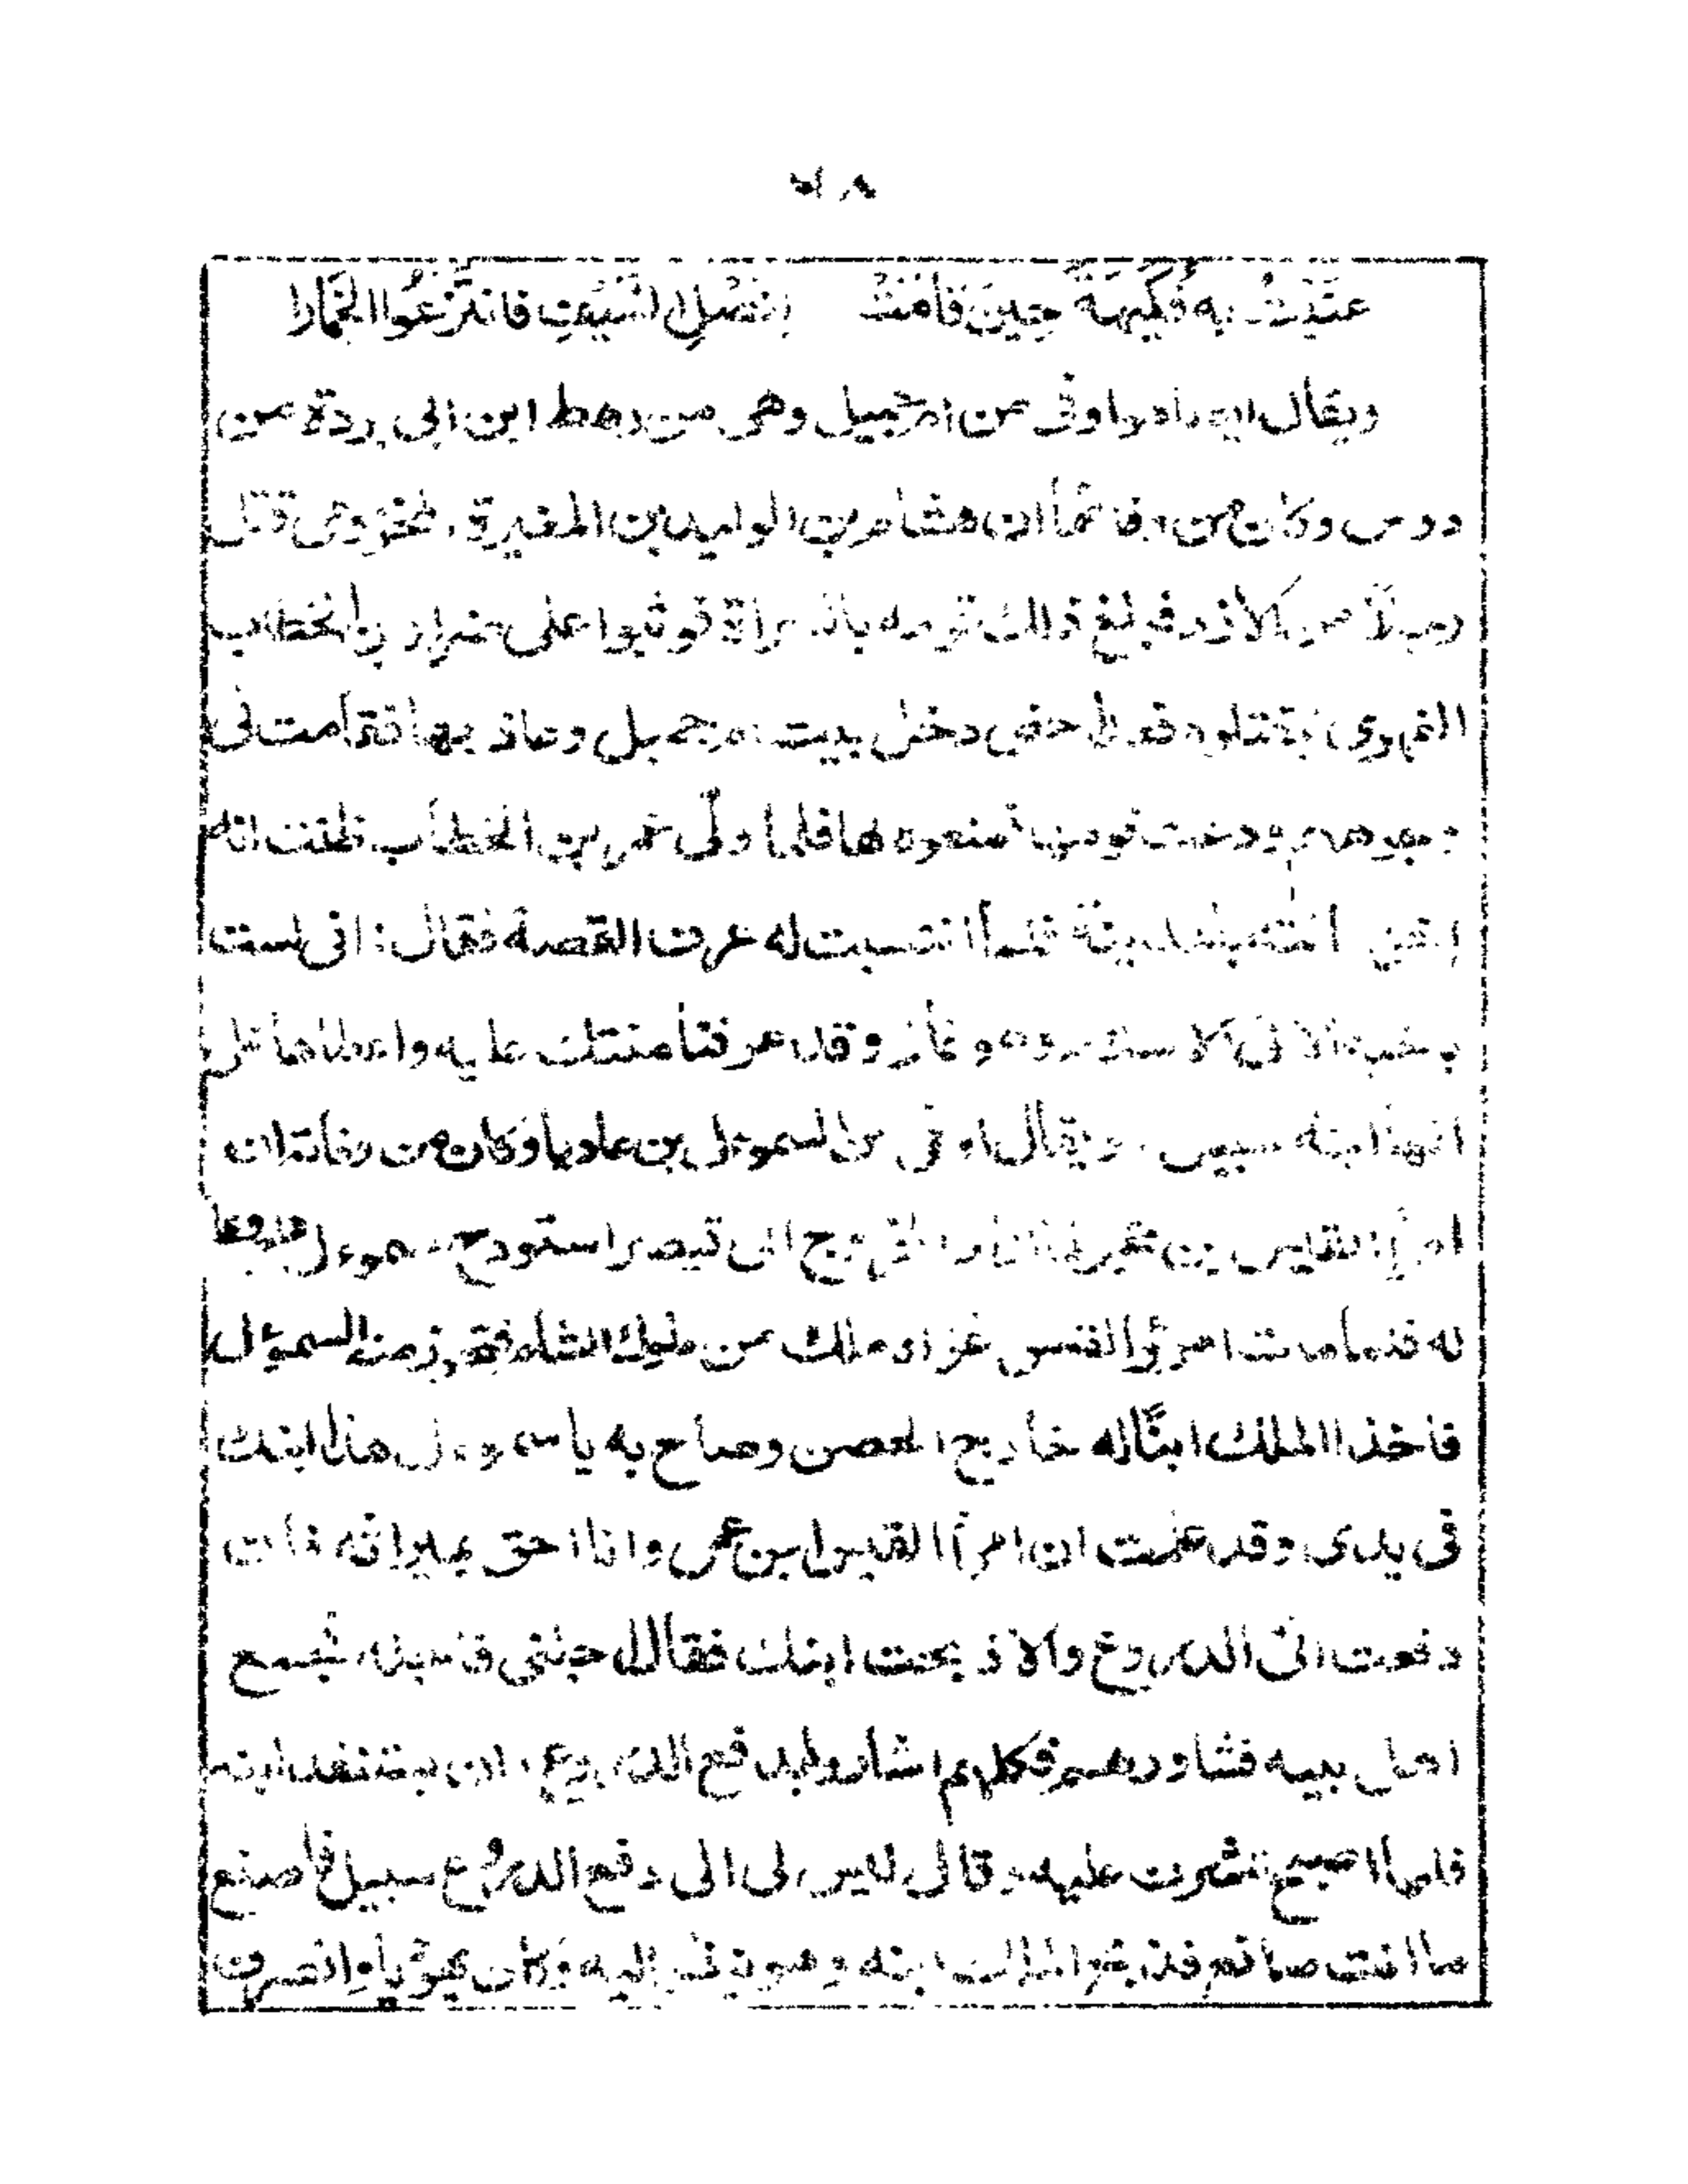 عَنَيْتُ به فُكَيْهَةَ حِينَ قَامَتْ لِنَصْلِ السَّيْفِ فانتَزَعُوا الخمارا
ويقال اوفى من ام جميل وهى من رهط ابن ابى بردة من
دوس وكان من وفائها ان هشام بن الوليد بن المغيرة المخزومى قتل
رجلًا من الأزد فبلغ ذلك قومه بالسراة فوثبوا على ضرار بن الخطاب
الفهرى ليقتلوه حتى دخل بيت ام جميل وعاذ بها فقامت فى
وجوههم ودعت قومها فمنعوه لها فلما ولّى عمر بن الخطاب ظنت انه
اتته بالمدينة فلما انتسبت له عرف القصة فقال: انى لست
الا فى الاسلام وهو غاز وقد عرفنا منتك عليه واعطاها على
انها ابنة سبيل. ويقال اوفى من السموءل بن عاديا وكان من وفائه ان
امرأ القيس بن حجر الخروج الى قيصر استودع السموءل دروعا
له فلما مات امرؤ القيس غزاه ملك من ملوك الشام فتحرز منه السموءل
فاخذ الملك ابنًا له خارج الحصن وصاح به يا سموءل هذا ابنك
فى يدى وقد علمت ان امرأ القيس ابن عمى وانا احق بميراثه فان
دفعت الىّ الدروع والا ذبحت ابنك فقال اجلنى فاجله فجمع
اهل بيته فشاورهم فكلهم اشاروا بدفع الدروع وان يستنقذ ابنه
فلما اصبح اشرف عليه وقال ليس لى الى دفع الدروع سبيل فاصنع
ما انت صانع فذبح الملك ابنه وهو ينظر اليه وكان يهوديا وانصرف